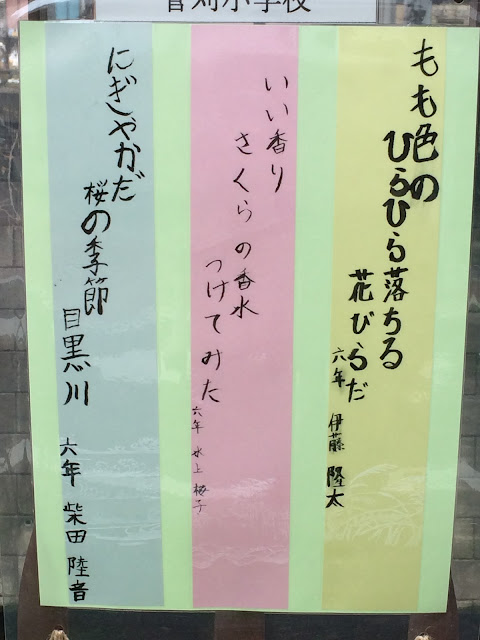 菅刈小学校
もも色の
ひらひら落ちる
花びらだ
六年 伊藤 隆太
いい香り
さくらの香水
つけてみた
六年 水上 桜子
にぎやかだ
桜の季節
目黒川
六年 柴田 陸音